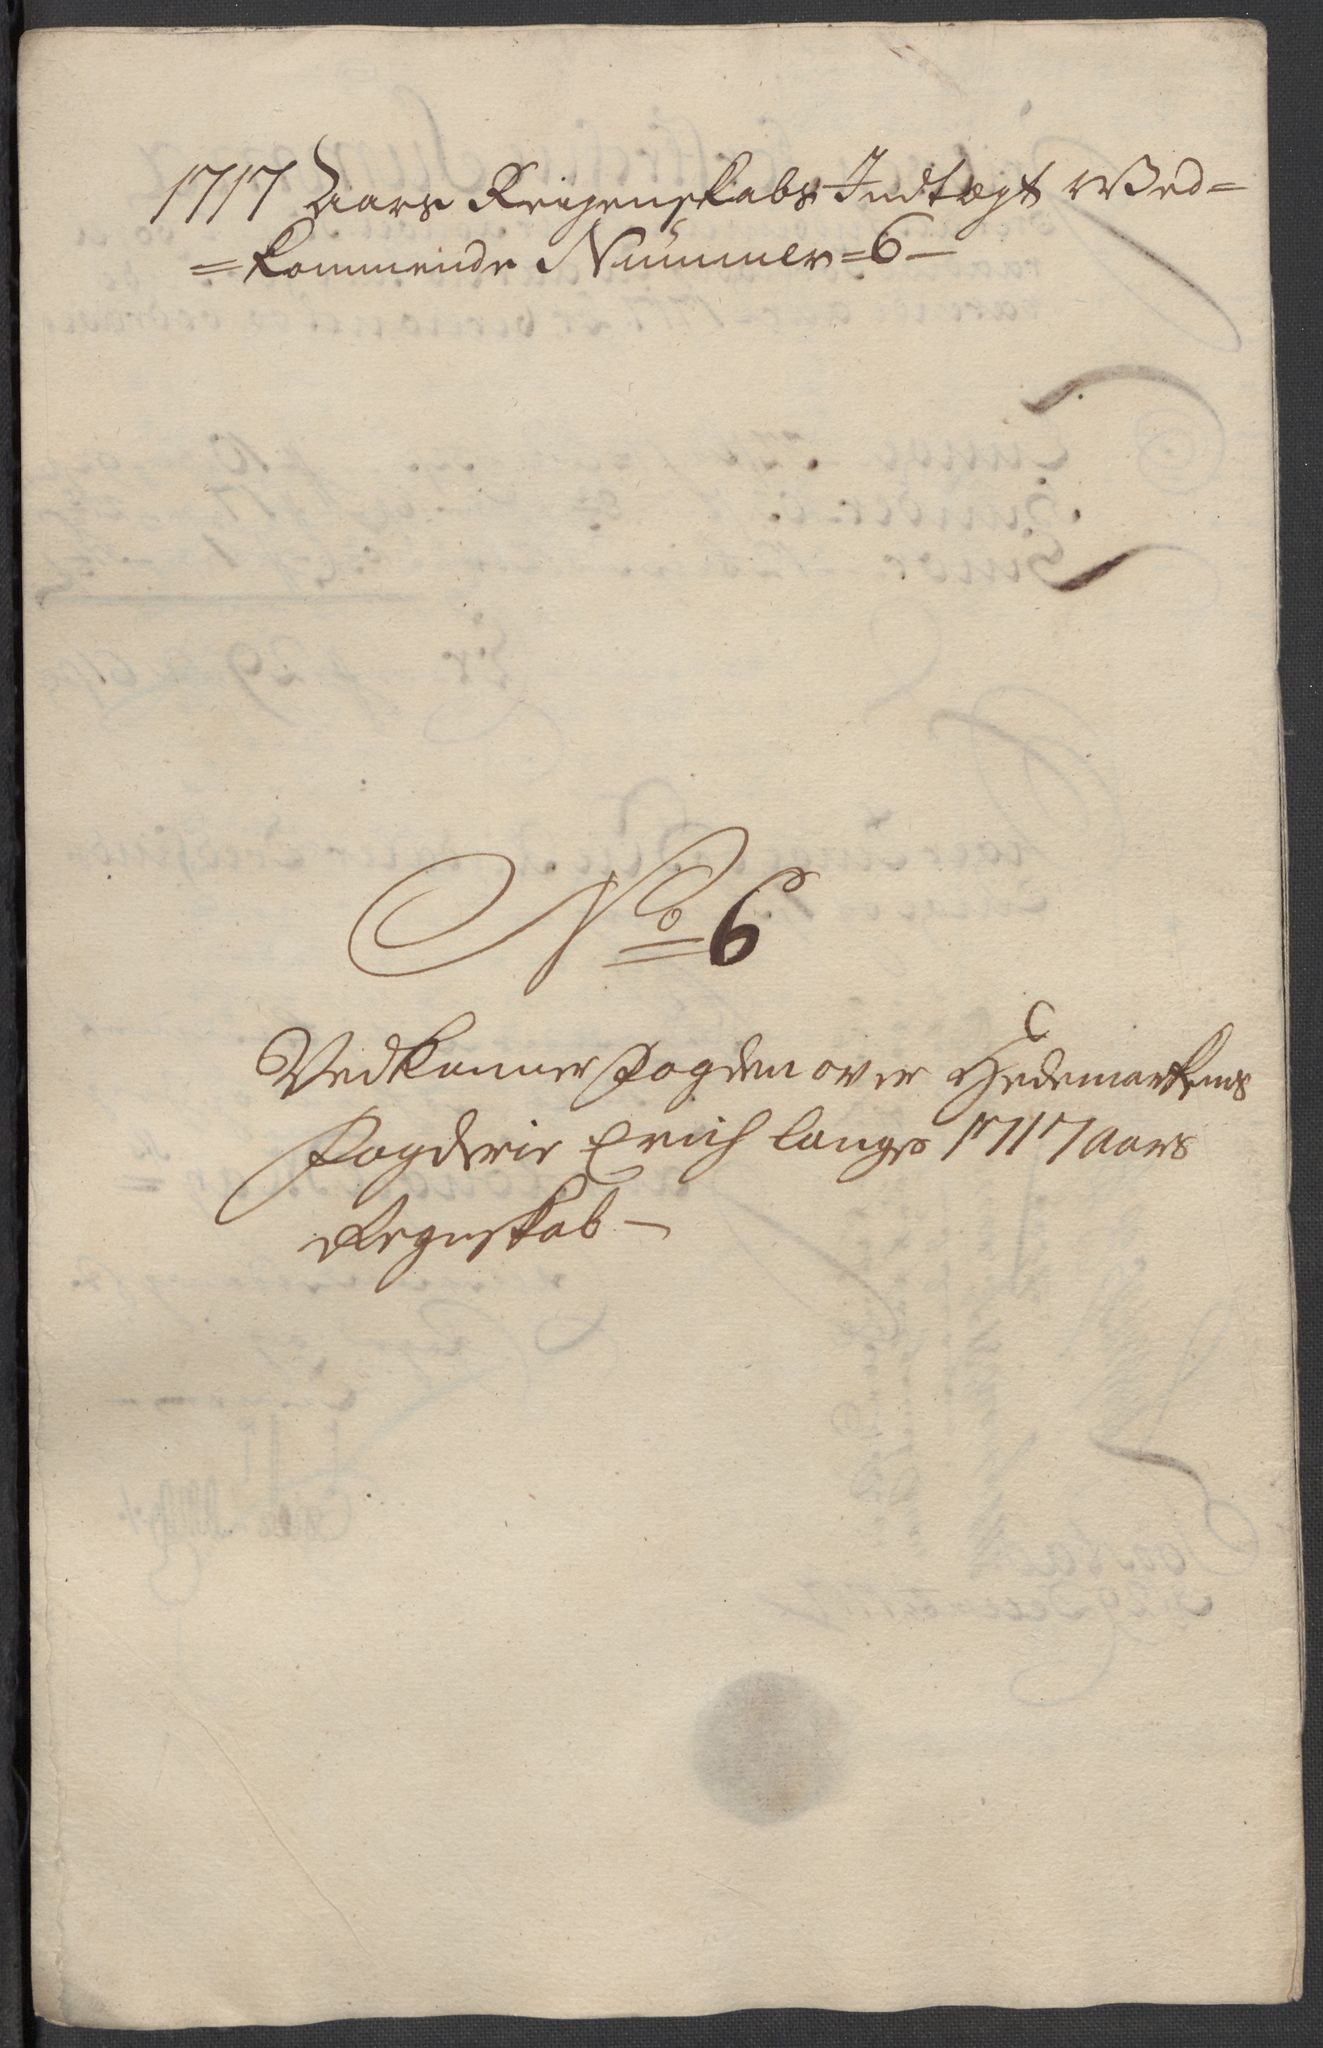 1717 Aars Reigenskabs Indtægt Wed=
=kommende Nummer =6 —
No 6
Vedkommer fogden over Hedemarkens
fogderie Erich langes 1717 Aars
Regnskab —